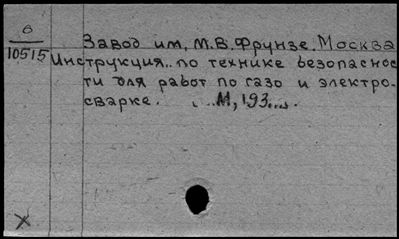 6
10515
Завод им. М.В. Фрунзе. Москва
Инструкция.. по технике безопаснос
ти для работ по газо и электро-
сварке. ... М, 193...
х